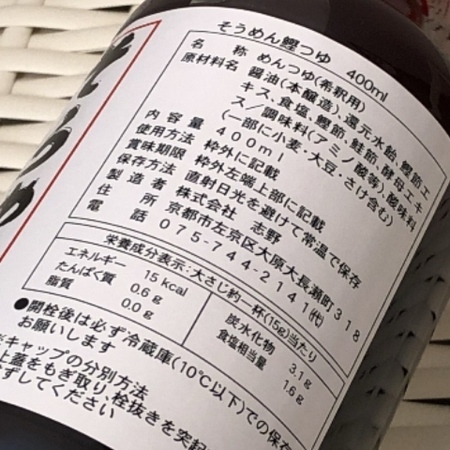 そうめん鰹つゆ 400ml
名称 めんつゆ(希釈用)
原材料名 醤油(本醸造)、還元水飴、鰹節エ
キス、食塩、鰹節、鮭節、酵母エキ
ス/調味料(アミノ酸等)、酸味料
(一部に小麦・大豆・さけ含む)
内容量 400ml
使用方法 枠外に記載
賞味期限 枠外左端上部に記載
保存方法 直射日光を避けて常温で保存
製造者 株式会社 志野
住所 京都市左京区大原大長瀬町318
電話 075-744-2141(代)
栄養成分表示:大さじ約一杯(15g)当たり
エネルギー 15kcal 炭水化物 3.1g
たんぱく質 0.6g 食塩相当量 1.6g
脂質 0.0g
●開栓後は必ず冷蔵庫(10℃以下)での保存
お願いします
※キャップの分別方法
上蓋をもぎ取り、栓抜きを突起
ずしてください